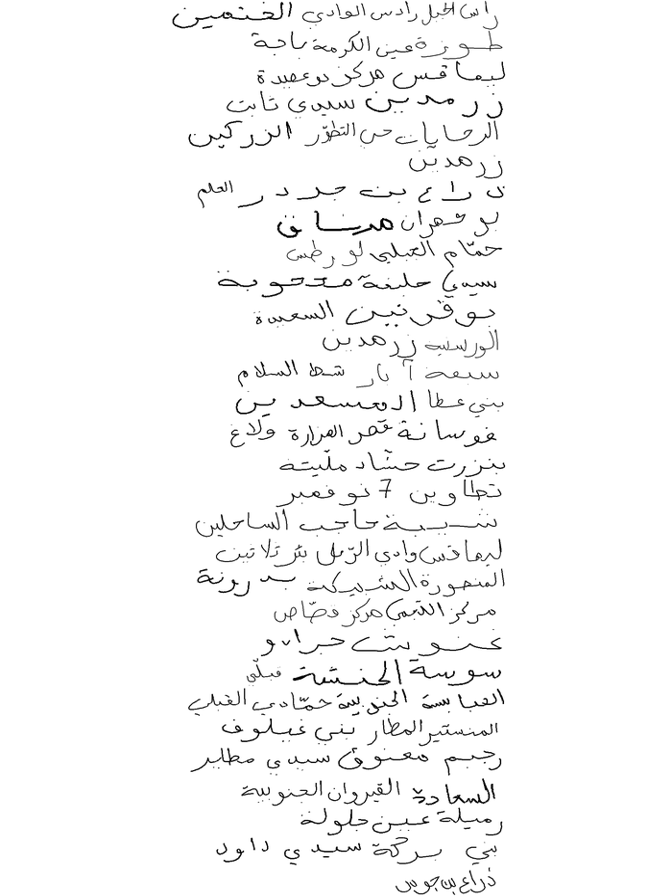 رأس الجبل رادس الوادي الخنمين
طويزة عين الكرمة باجة
ليماقس مركز بوعصيدة
زرمدين سيدي ثابت
الرحايات حي التطوّر الزركين
زرمدين
ذراع بن جدر العلم
بوشهران مرناق
حمّام القبلي لورطس
سيدي خليفة معتوبة
بوقرنين السعيدة
الورسية زرمدين
سبعة آبار شط السلام
بني عطا المسعدين
فوسانة قصر الهرارة ولاغ
بنزرت حشاد مليتة
تطاوين 7 نوفمبر
شبيبة حاجب الساحلين
ليماقس وادي الرّمل بئر ثلاثين
المنصورة الشبيكة بدرونة
مركز اللجمي مركز قصّاص
غنوش
سوسة الخنشة قبلّي
العباسة الجنوبية حمّادي القبلي
المنستير المطار بني غيلوف
رجيم معتوق سيدي مطير
السعادة القيروان الجنوبية
رميلة عين جلولة
بني بركة سيدي داود
ذراع بن جوس